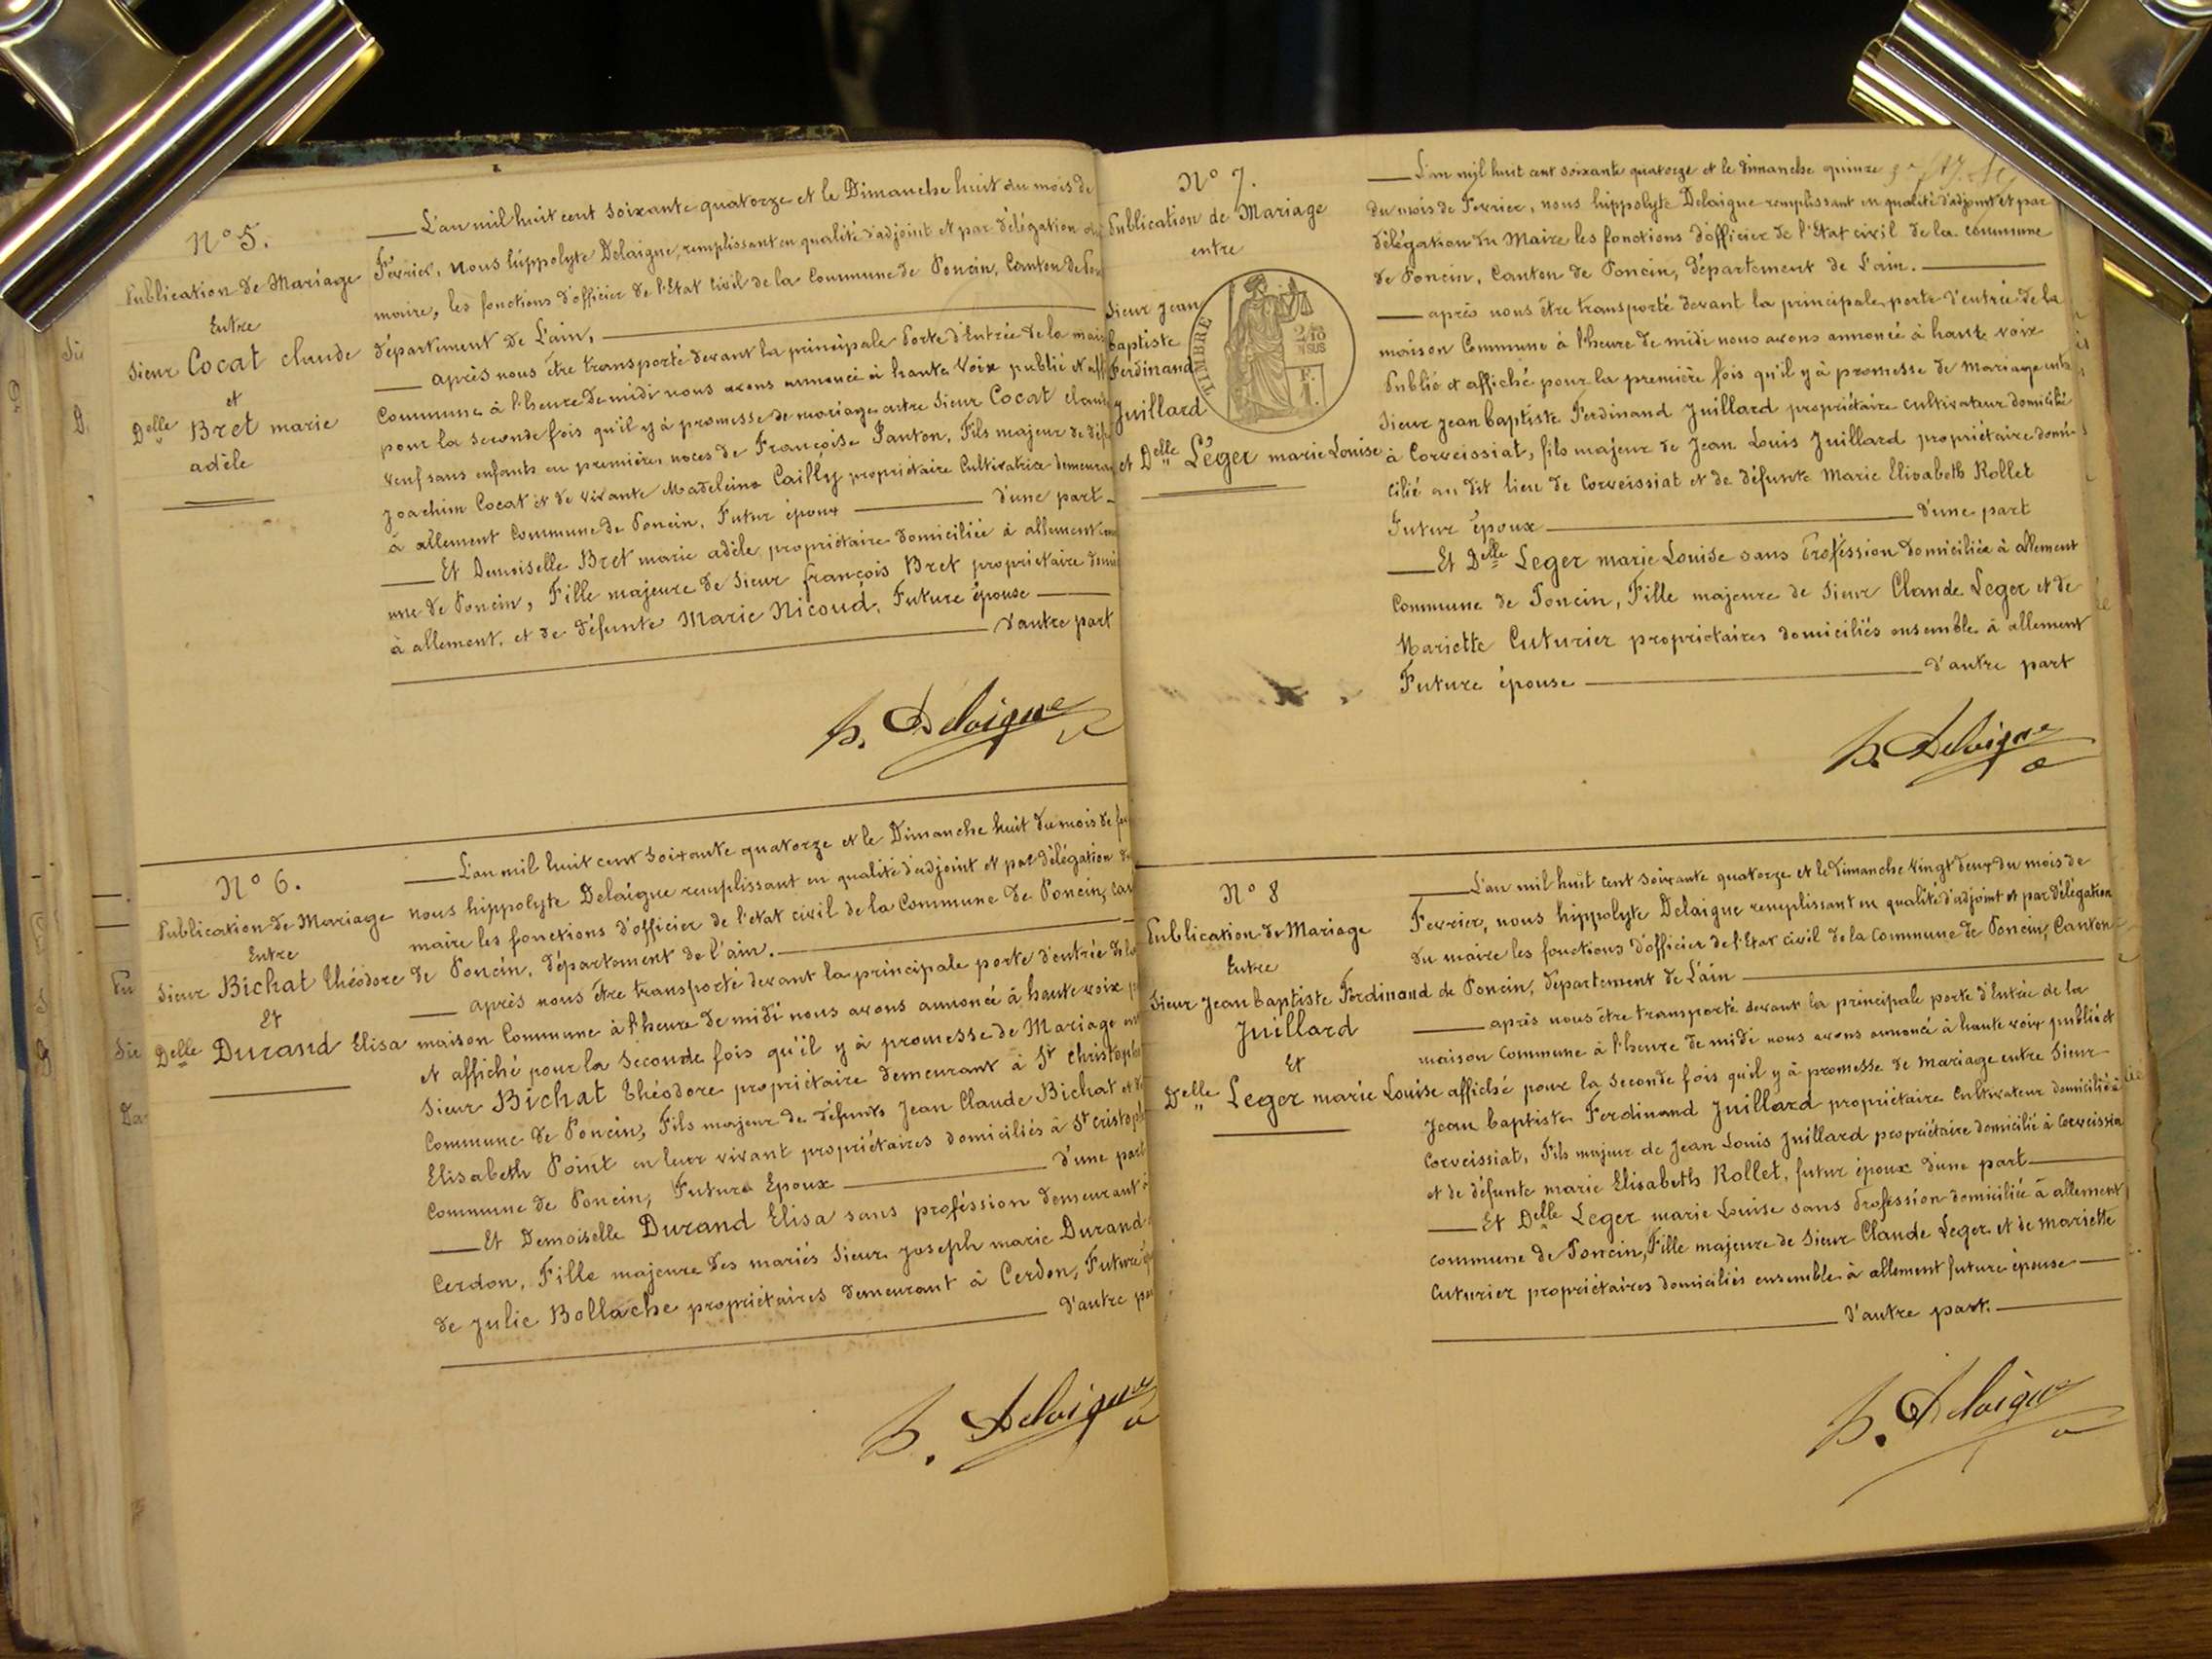 N° 5.
Publication de Mariage
Entre
Sieur Cocat claude
et
Delle Bret marie
adèle
L'an mil huit cent soixante quatorze et le Dimanche huit du mois de
Février, nous hippolyte Delaigue, remplissant en qualité d'adjoint et par délégation du
maire, les fonctions d'officier de l'Etat civil de la Commune de Poncin, Canton de
département de L'ain,
après nous être transporté devant la principale Porte d'Entrée de la
Commune à l'heure de midi nous avons annoncé à haute Voix publié et
pour la seconde fois qu'il y à promesse de mariage entre Sieur Cocat
veuf sans enfants en première, noces de Françoise Panton, Fils majeur de
Joachim Cocat et de vivante Madeleine Cailly propriétaire Cultivatrice
à allement Commune de Poncin, Futur époux d'une part
Et Demoiselle Bret marie adèle, propriétaire domiciliée à allement
une de Poncin, Fille majeure de Sieur françois Bret propriétaire
à allement, et de défunte Marie Nicoud, Future épouse
d'autre part
h. Delaigue
N° 6.
Publication de Mariage
Entre
Sieur Bichat théodore
Et
Delle Durand Elisa
L'an mil huit cent soixante quatorze et le Dimanche huit du mois de
nous hippolyte Delaigue remplissant en qualité d'adjoint et par délégation
maire les fonctions d'officier de l'état civil de la Commune de Poncin,
de Poncin, département de l'ain.
après nous être transporté devant la principale porte d'entrée de la
maison Commune à l'heure de midi nous avons annoncé à haute voix
et affiché pour la seconde fois qu'il y à promesse de Mariage
Sieur Bichat théodore propriétaire demeurant à St
Commune de Poncin, Fils majeur de défunts Jean Claude Bichat et
Elisabeth Point en leur vivant propriétaires domiciliés à St
Commune de Poncin, Future Epoux d'une part
Et Demoiselle Durand Elisa sans proféssion demeurant à
Cerdon, Fille majeure des mariés Sieur Joseph marie Durand
de Julie Bollache propriétaires demeurant à Cerdon, Future
d'autre
h. Delaigue
N° 7.
Publication de Mariage
entre
Sieur Jean
baptiste
Ferdinand
Juillard
et Delle Léger marie Louise
TIMBRE
2/10
EN SUS
L'an mil huit cent soixante quatorze et le dimanche quinze
du mois de Fevrier, nous hippolyte Delaigue remplissant en qualité d'adjoint et par
délégation du Maire les fonctions d'officier de l'Etat civil de la commune
de Poncin, Canton de Poncin, département de L'ain.
après nous être transporté devant la principale porte d'entrée de la
maison Commune à l'heure de midi nous avons annoncé à haute voix
Publié et affiché pour la première fois qu'il y à promesse de Mariage entre
Sieur Jean baptiste Ferdinand Juillard propriétaire cultivateur domicilié
à Corveissiat, fils majeur de Jean Louis Juillard propriétaire domi-
cilié au dit lieu de Corveissiat et de défunte Marie Elisabeth Rollet
Futur époux d'une part
Et Delle Leger marie Louise sans Proféssion domiciliée à allement
Commune de Poncin, Fille majeure de Sieur Claude Leger et de
Mariette Cuturier propriétaires domiciliés ensemble à allement
Future épouse d'autre part
h. Delaigue
N° 8
Publication de Mariage
Entre
Sieur Jean baptiste Ferdinand
Juillard
Et
Delle Leger marie Louise
L'an mil huit cent soixante quatorze et le Dimanche Vingt deux du mois de
Fevrier, nous hippolyte Delaigue remplissant en qualité d'adjoint et par délégation
du maire les fonctions d'officier de l'Etat civil de la Commune de Poncin, Canton
de Poncin, département de L'ain
après nous être transporté devant la principale porte d'Entrée de la
maison Commune à l'heure de midi nous avons annoncé à haute voix publié et
affiché pour la seconde fois qu'il y à promesse de mariage entre Sieur
Jean baptiste Ferdinand Juillard propriétaire Cultivateur domicilié à
Corveissiat, Fils majeur de Jean Louis Juillard propriétaire domicilié à Corveissiat
et de défunte marie Elisabeth Rollet, futur époux d'une part
Et Delle Leger marie Louise sans Profession domiciliée à allement
commune de Poncin, Fille majeure de Sieur Claude Leger et de mariette
Cuturier propriétaires domiciliés ensemble à allement future épouse
d'autre part.
h. Delaigue